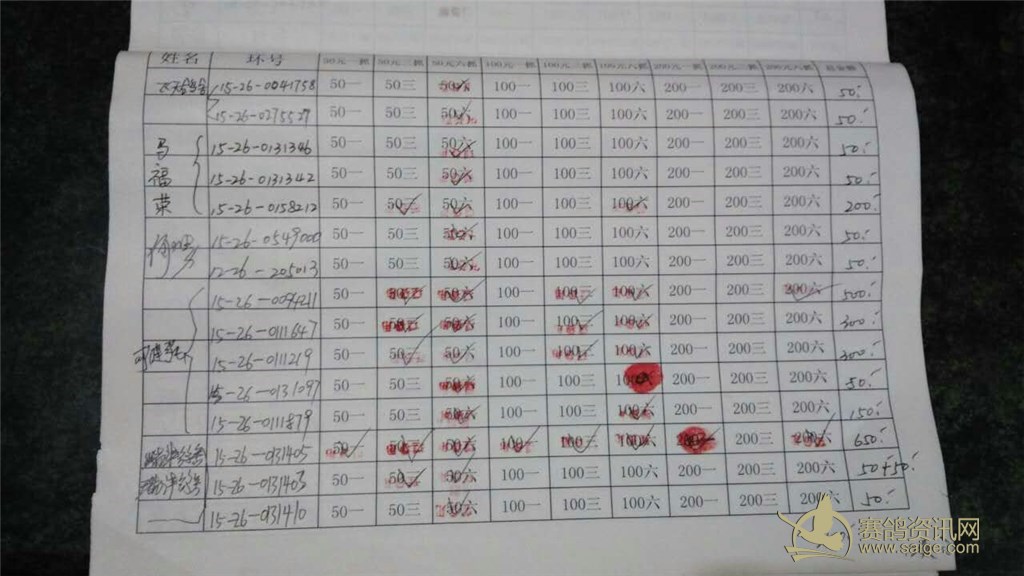 姓名 环号 50元一抓 50元三抓 50元六抓 100元一抓 100元三抓 100元六抓 200元一抓 200元三抓 200元六抓 总金额
15-26-0041758 50一 50三 50六 100一 100三 100六 200一 200三 200六 50
15-26-0275527 50一 50三 50六 100一 100三 100六 200一 200三 200六 50
马 15-26-0131346 50一 50三 50六 100一 100三 100六 200一 200三 200六 50
福 15-26-0131342 50一 50三 50六 100一 100三 100六 200一 200三 200六 50
荣 15-26-0158212 50一 50三 50六 100一 100三 100六 200一 200三 200六 200
15-26-0549000 50一 50三 50六 100一 100三 100六 200一 200三 200六 50
12-26-205013 50一 50三 50六 100一 100三 100六 200一 200三 200六 50
15-26-0094211 50一 50三 50六 100一 100三 100六 200一 200三 200六 500
15-26-0111647 50一 50三 50六 100一 100三 100六 200一 200三 200六 300
15-26-0111219 50一 50三 50六 100一 100三 100六 200一 200三 200六 300
15-26-0131097 50一 50三 50六 100一 100三 100六 200一 200三 200六 50
15-26-0111879 50一 50三 50六 100一 100三 100六 200一 200三 200六 150
15-26-0131405 50一 50三 50六 100一 100三 100六 200一 200三 200六 650
15-26-0131403 50一 50三 50六 100一 100三 100六 200一 200三 200六 50+50
15-26-0131410 50一 50三 50六 100一 100三 100六 200一 200三 200六 50
赛鸽资讯网
www.saige.com